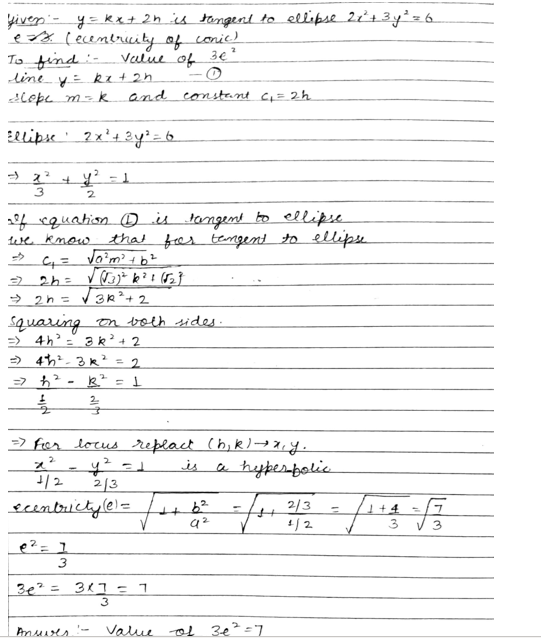 Given:- y = kx + 2h is tangent to ellipse 2x² + 3y² = 6
e (ecentricity of conic)
To find :- value of 3e²
line y = kx + 2h —①
slope m = k and constant c₁ = 2h
Ellipse: 2x² + 3y² = 6
⇒ x²/3 + y²/2 = 1
If equation ① is tangent to ellipse
we know that for tangent to ellipse
⇒ c₁ = √(a²m² + b²)
⇒ 2h = √((√3)² k² + (√2)²)
⇒ 2h = √(3k² + 2)
Squaring on both sides.
⇒ 4h² = 3k² + 2
⇒ 4h² - 3k² = 2
⇒ h²/(1/2) - k²/(2/3) = 1
⇒ For locus replact (h,k) → x,y.
x²/(1/2) - y²/(2/3) = 1 is a hyperpolic
ecentricty(e) = √(1 + b²/a²) = √(1 + (2/3)/(1/2)) = √(1 + 4/3) = √(7/3)
e² = 7/3
3e² = 3×7/3 = 7
Answer :- Value of 3e² = 7